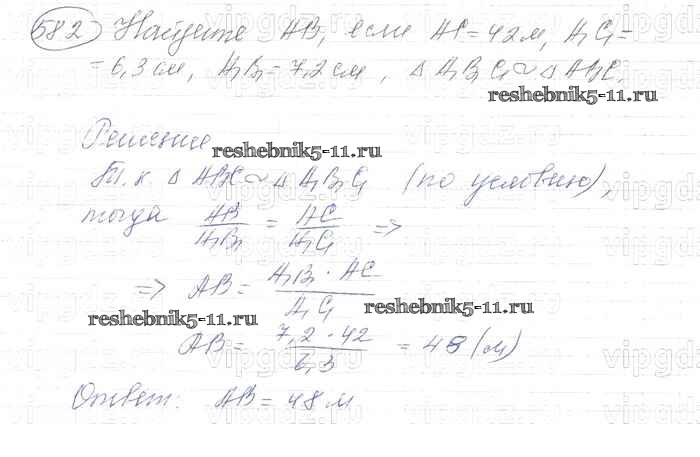 582 Найдите AB, если AC = 42 м, A₁C₁ =
= 6,3 см, A₁B₁ = 7,2 см, △ A₁B₁C₁ ~ △ ABC.
reshebnik5-11.ru
Решение
reshebnik5-11.ru
Т.к. △ ABC ~ △ A₁B₁C₁ (по условию),
тогда AB/A₁B₁ = AC/A₁C₁ =>
=> AB = A₁B₁ · AC / A₁C₁
reshebnik5-11.ru
reshebnik5-11.ru
AB = 7,2 · 42 / 6,3 = 48 (м)
Ответ: AB = 48 м